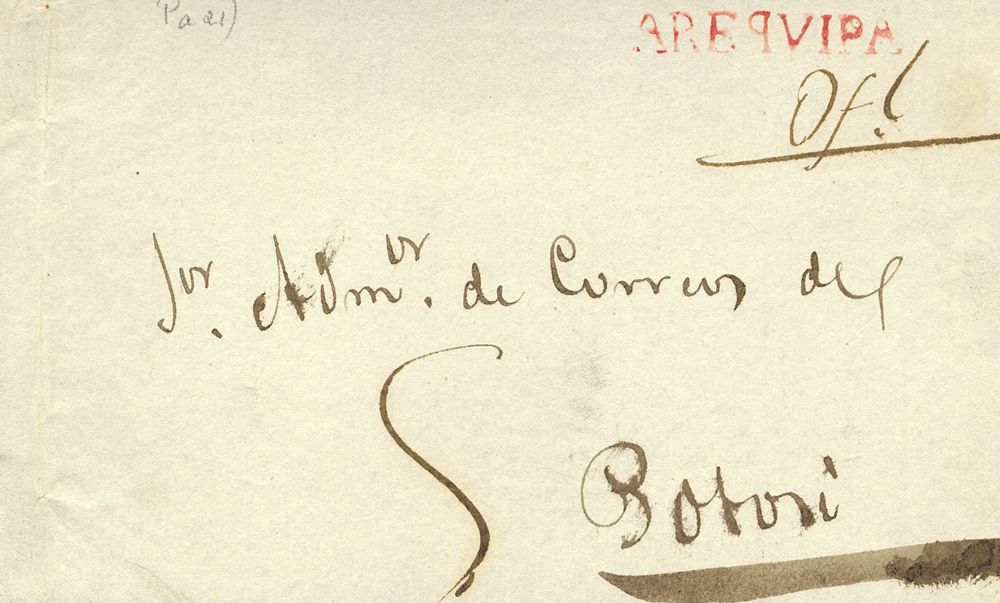 (Pa 21)
AREQVIPA
Of.l
Sor. Admor. de Correos de
Potosi